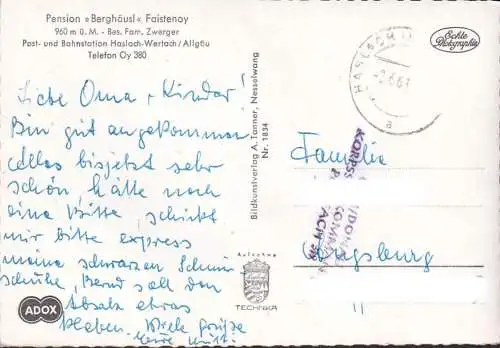 Pension »Berghäusl« Faistenoy
960 m ü. M. - Bes. Fam. Zwerger
Post- und Bahnstation Haslach-Wertach / Allgäu
Telefon Oy 380
Liebe Oma + Kinder!
Bin gut angekommen
Alles bis jetzt sehr
schön hätte noch
eine Bitte, schickt
mir bitte express
meine schwarzen Schnür
schuhe, Bernd soll den
Absatz etwas
kleben. Viele Grüße
Eure Mutti
ADOX
Bildkunstverlag A. Tanner, Nesselwang
Nr. 1834
Aufnahme
TECHNIKA
Echte
Photographie
HASLACH
-2.6.61
a
Familie
Augsburg
KORPS